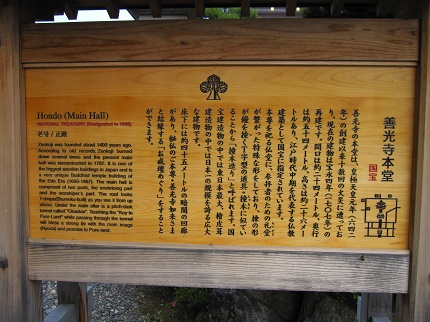 Hondo (Main Hall)
NATIONAL TREASURE (Designated in 1953)
본당 / 正殿
Zenkoji was founded about 1400 years ago.
According to old records, Zenkoji burned
down several times and the present main
hall was reconstructed in 1707. It is one of
the biggest wooden buildings in Japan and is
a very unique Buddhist temple building of
the Edo Era (1603-1867). The main hall is
comprised of two parts, the enshrining part
and the worshiper's part. The roof looks
T-shape(Shumoku-built) as you see it from up
above. Under the main altar is a pitch-dark
tunnel called "Okaidan". Touching the "Key to
Pure-Land" while passing through the tunnel
will bless a strong tie with the main image
(Nyorai) and promise to Pure-land.
善光寺本堂
国宝
善光寺の本堂は、皇極天皇元年(六四二
年)の創建以来十数回の火災に遭ってお
り、現在の建物は宝永四年(一七〇七年)の
再建です。間口は約二十四メートル、奥行
は約五十四メートル、高さは約二十六メー
トルあり、江戸時代中期を代表する仏教
建築として国宝に指定されています。
本尊を祀る仏堂に、参拝者のための礼堂
が繋がった特殊な形をしており、棟の形
が鐘を撞くT字型の道具・撞木に似てい
ることから「撞木造り」と呼ばれます。国
宝建造物の中では東日本最大、檜皮葺
建造物の中では日本一の規模を誇る広大
な建物です。
床下には約四十五メートルの暗闇の回廊
があり、秘仏のご本尊・善光寺如来さま
と結縁する「お戒壇めぐり」をすること
ができます。